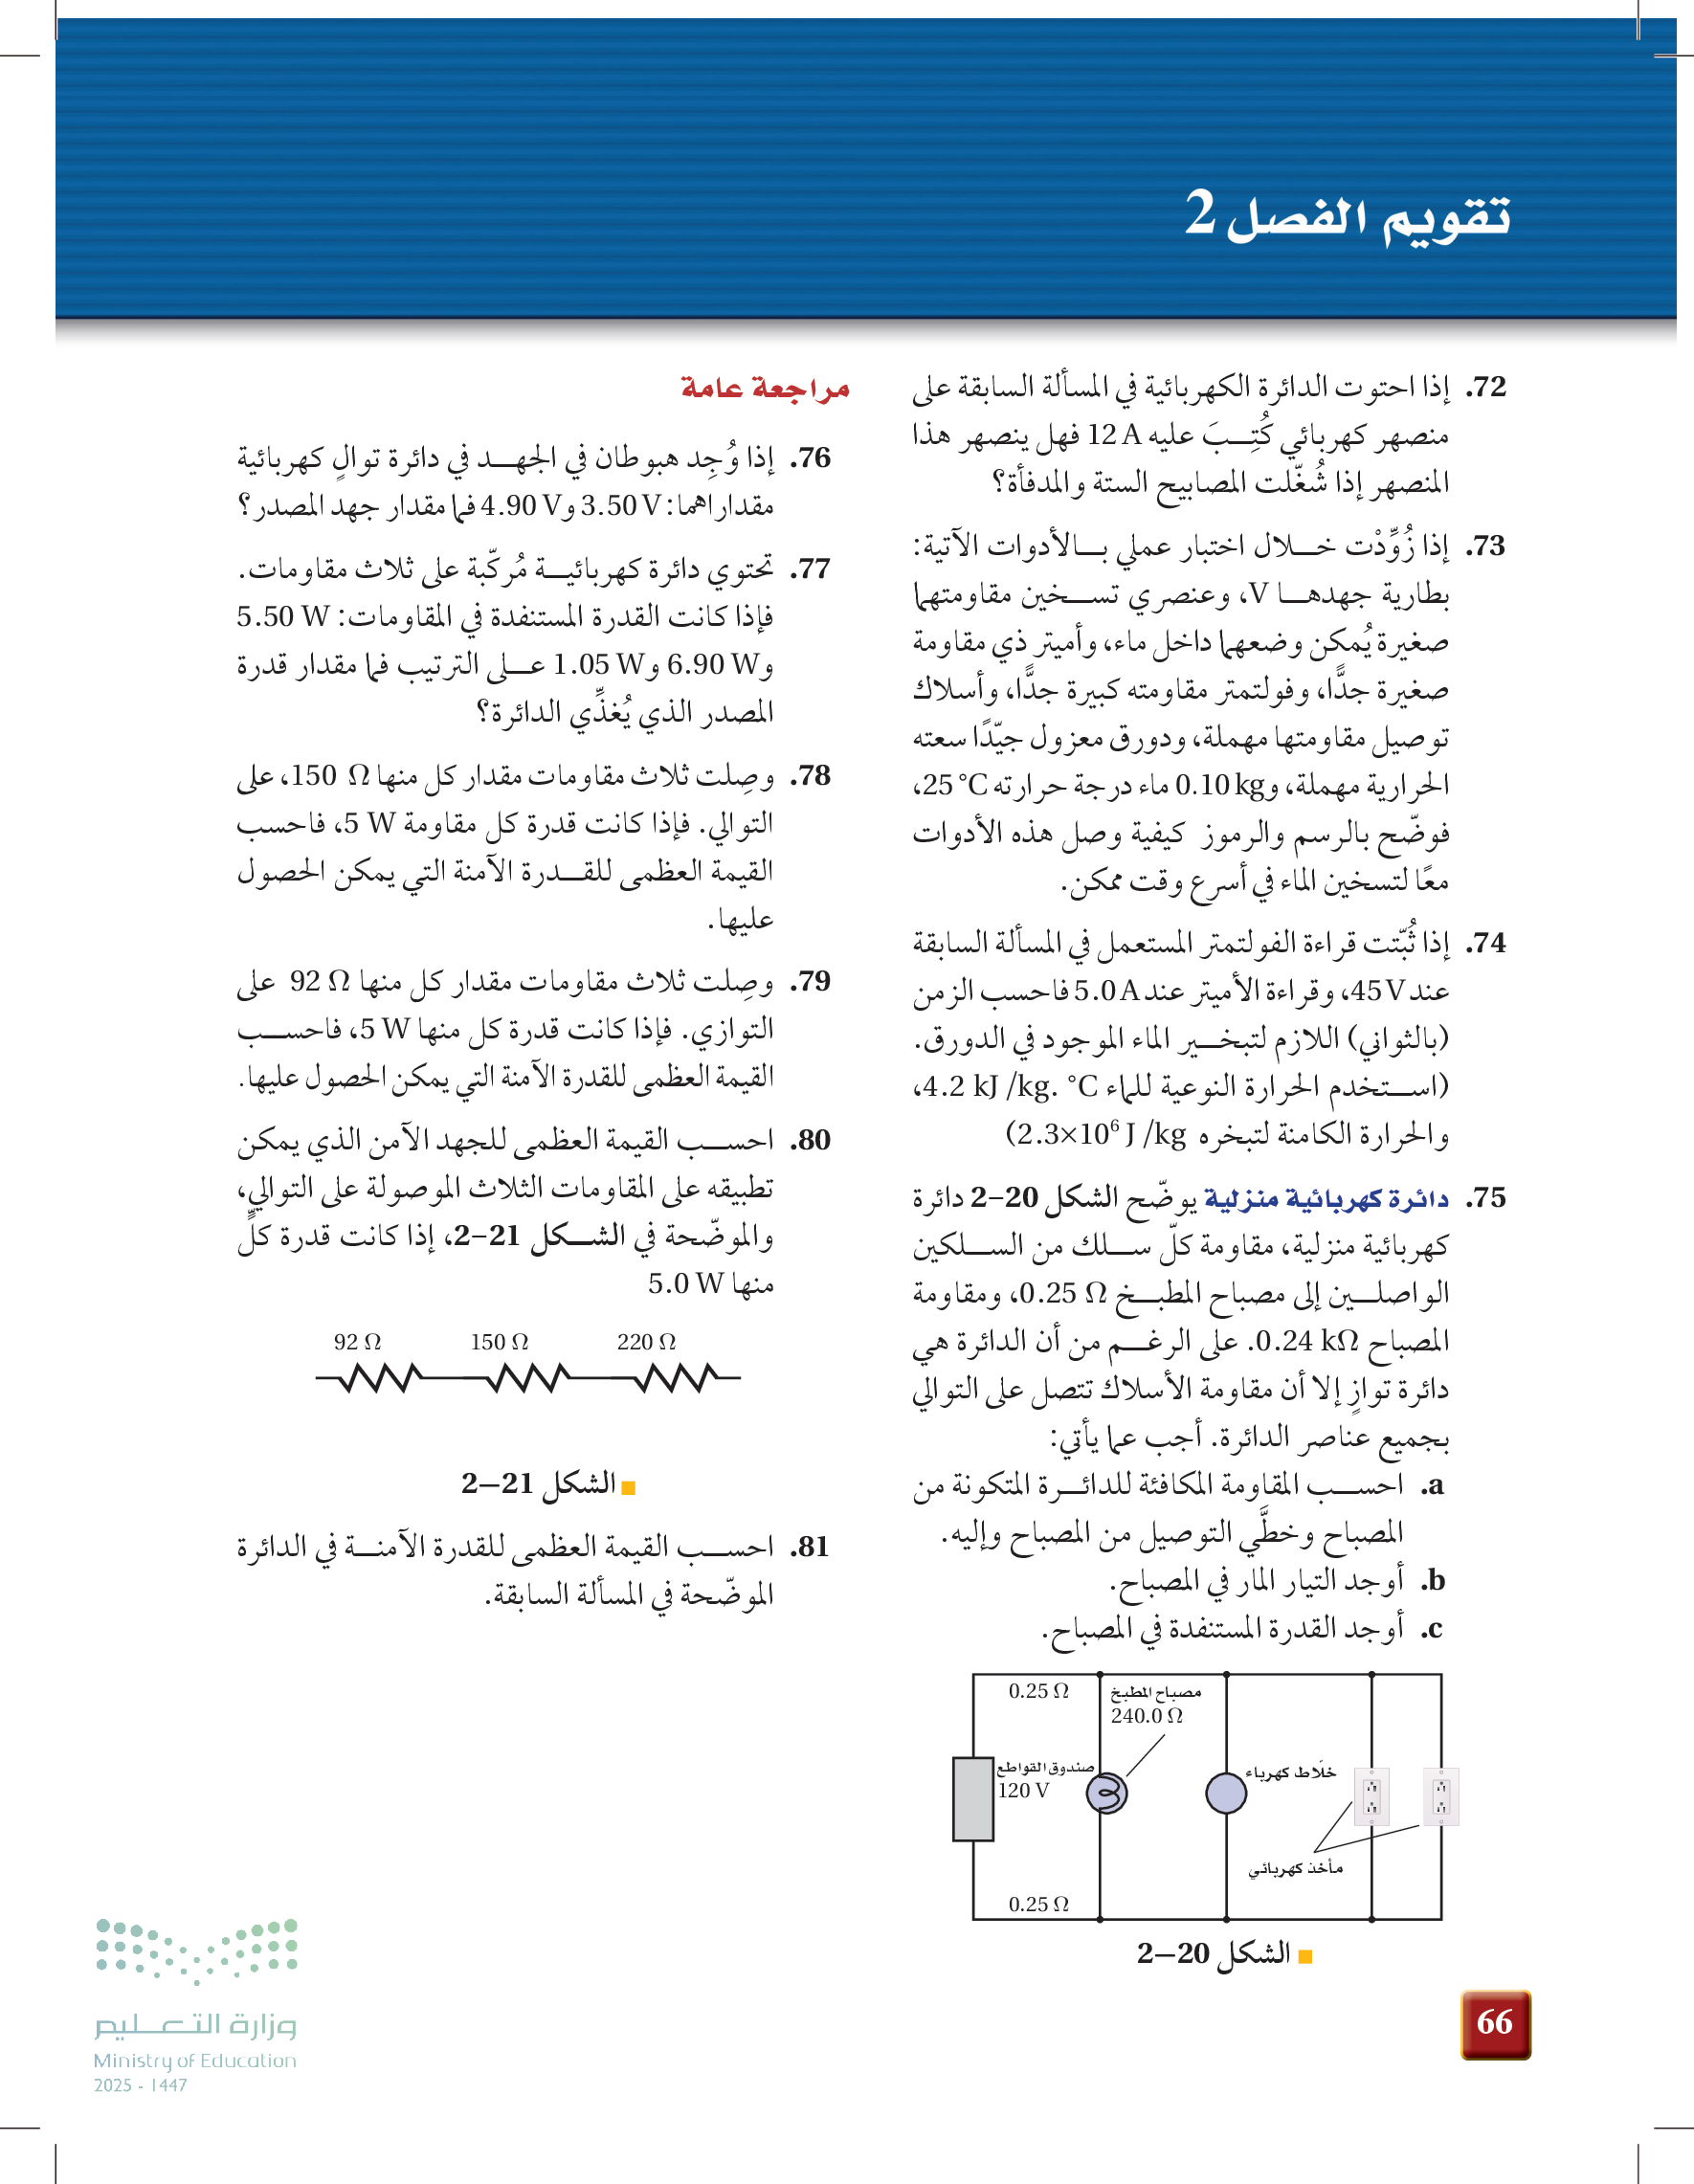 تقويم الفصل 2
72. إذا احتوت الدائرة الكهربائية في المسألة السابقة على
منصهر كهربائي كُتِبَ عليه 12 A فهل ينصهر هذا
المنصهر إذا شُغّلت المصابيح الستة والمدفأة؟
73. إذا زُوِّدْت خلال اختبار عملي بالأدوات الآتية:
بطارية جهدها V، وعنصري تسخين مقاومتهما
صغيرة يُمكن وضعهما داخل ماء، وأميتر ذي مقاومة
صغيرة جدًّا، وفولتمتر مقاومته كبيرة جدًّا، وأسلاك
توصيل مقاومتها مهملة، ودورق معزول جيّدًا سعته
الحرارية مهملة، و0.10 kg ماء درجة حرارته 25 °C،
فوضّح بالرسم والرموز كيفية وصل هذه الأدوات
معًا لتسخين الماء في أسرع وقت ممكن.
74. إذا ثُبّتت قراءة الفولتمتر المستعمل في المسألة السابقة
عند 45 V، وقراءة الأميتر عند 5.0 A فاحسب الزمن
(بالثواني) اللازم لتبخير الماء الموجود في الدورق.
(استخدم الحرارة النوعية للماء 4.2 kJ /kg. °C،
والحرارة الكامنة لتبخره 2.3×10⁶ J /kg)
75. دائرة كهربائية منزلية يوضّح الشكل 20–2 دائرة
كهربائية منزلية، مقاومة كلّ سلك من السلكين
الواصلين إلى مصباح المطبخ 0.25 Ω، ومقاومة
المصباح 0.24 kΩ. على الرغم من أن الدائرة هي
دائرة توازٍ إلا أن مقاومة الأسلاك تتصل على التوالي
بجميع عناصر الدائرة. أجب عما يأتي:
a. احسب المقاومة المكافئة للدائرة المتكونة من
المصباح وخطَّي التوصيل من المصباح وإليه.
b. أوجد التيار المار في المصباح.
c. أوجد القدرة المستنفدة في المصباح.
0.25 Ω
مصباح المطبخ
240.0 Ω
صندوق القواطع
120 V
خلّاط كهرباء
مأخذ كهربائي
0.25 Ω
الشكل 20–2
مراجعة عامة
76. إذا وُجِد هبوطان في الجهد في دائرة توالٍ كهربائية
مقداراهما: 3.50 V و4.90 V فما مقدار جهد المصدر؟
77. تحتوي دائرة كهربائية مُركّبة على ثلاث مقاومات.
فإذا كانت القدرة المستنفدة في المقاومات: 5.50 W
و6.90 W و1.05 W على الترتيب فما مقدار قدرة
المصدر الذي يُغذِّي الدائرة؟
78. وصِلت ثلاث مقاومات مقدار كل منها 150 Ω، على
التوالي. فإذا كانت قدرة كل مقاومة 5 W، فاحسب
القيمة العظمى للقدرة الآمنة التي يمكن الحصول
عليها.
79. وصِلت ثلاث مقاومات مقدار كل منها 92 Ω على
التوازي. فإذا كانت قدرة كل منها 5 W، فاحسب
القيمة العظمى للقدرة الآمنة التي يمكن الحصول عليها.
80. احسب القيمة العظمى للجهد الآمن الذي يمكن
تطبيقه على المقاومات الثلاث الموصولة على التوالي،
والموضّحة في الشكل 21–2، إذا كانت قدرة كلٍّ
منها 5.0 W
92 Ω 150 Ω 220 Ω
الشكل 21–2
81. احسب القيمة العظمى للقدرة الآمنة في الدائرة
الموضّحة في المسألة السابقة.
وزارة التعليم
Ministry of Education
2025 - 1447
66